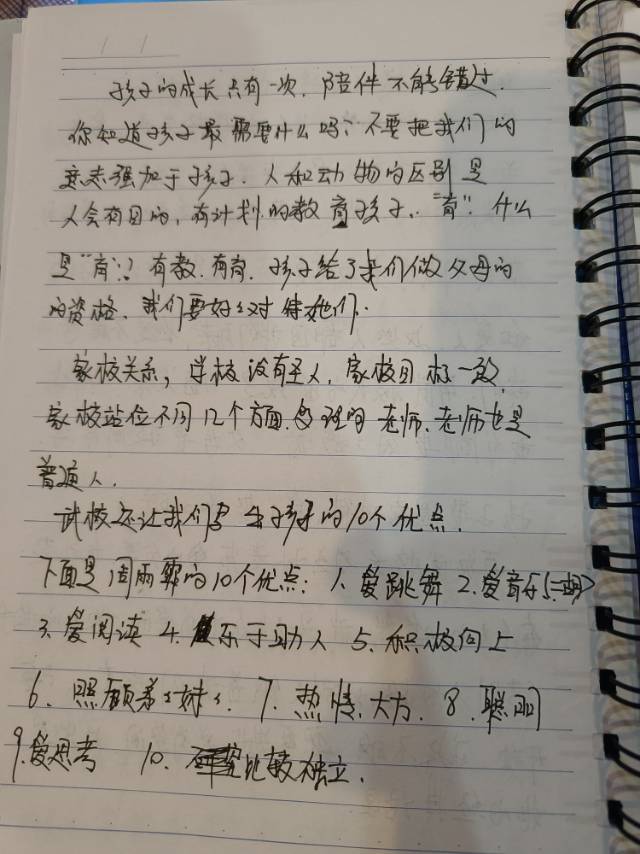 孩子的成长只有一次，陪伴不能错过.
你知道孩子最需要什么吗？不要把我们的
意志强加于孩子. 人和动物的区别是
人会有目的，有计划的教育孩子. "育"! 什么
是"育"? 有教.有育. 孩子给了我们做父母的
的资格、我们要好好对待她们.
家校关系，学校没有圣人，家校目标一致
家校站位不同12个方面. 理的老师. 老师也是
普通人.
武校还让我们写出孩子的10个优点.
下面是周雨霏的10个优点: 1. 爱跳舞 2. 爱音乐(二胡)
3. 爱阅读 4. 乐于助人 5. 积极向上
6. 照顾弟弟妹妹. 7. 热情.大方. 8. 聪明
9. 爱思考 10. 比较独立.